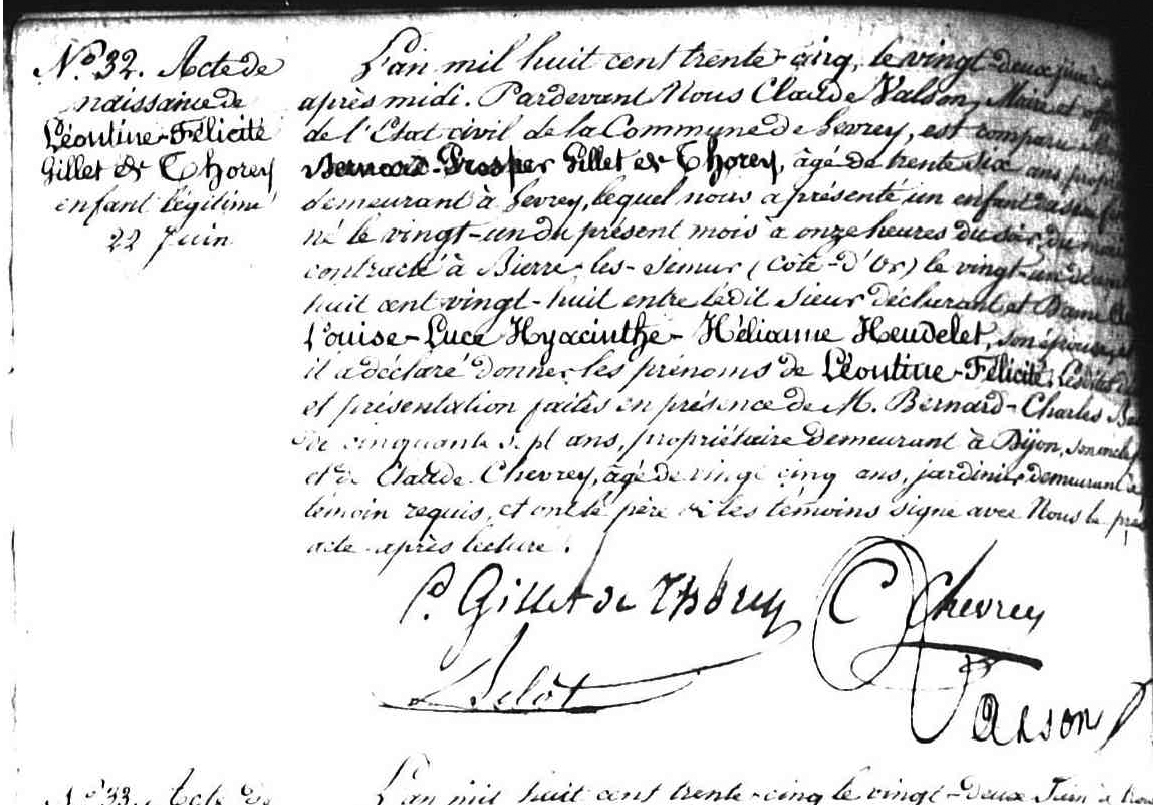 N.º 32. Acte de
naissance de
Léontine-Félicité
Gillet de Thorey
enfant légitime
22 Juin
L'an mil huit cent trente-cinq, le vingt-deux juin
après midi. Pardevant Nous Claude Valson, Maire et
de l'Etat civil de la Commune de Sevrey, est comparu
Bernard-Prosper Gillet de Thorey, âgé de trente six ans
demeurant à Sevrey, lequel nous a présenté un enfant
né le vingt-un du présent mois à onze heures du soir, du
contracté à Bierre-les-Semur (Côte-d'Or) le vingt-un
huit cent vingt-huit entre ledit sieur déclarant et Dame
Louise-Luce Hyacinthe-Mélianne Heudelet, son épouse, et
il a déclaré donner les prénoms de Léontine-Félicité.
et présentation faites en présence de M. Bernard-Charles
de cinquante sept ans, propriétaire demeurant à Dijon, son oncle
et de Claude Chevrey, âgé de vingt cinq ans, jardinier demeurant à
témoin requis, et ont le père et les témoins signé avec Nous le
acte après lecture.
P. Gillet de Thorey
C Chevrey
Belot
Valson
N.º 33. Acte de
L'an mil huit cent trente-cinq le vingt-deux Juin à